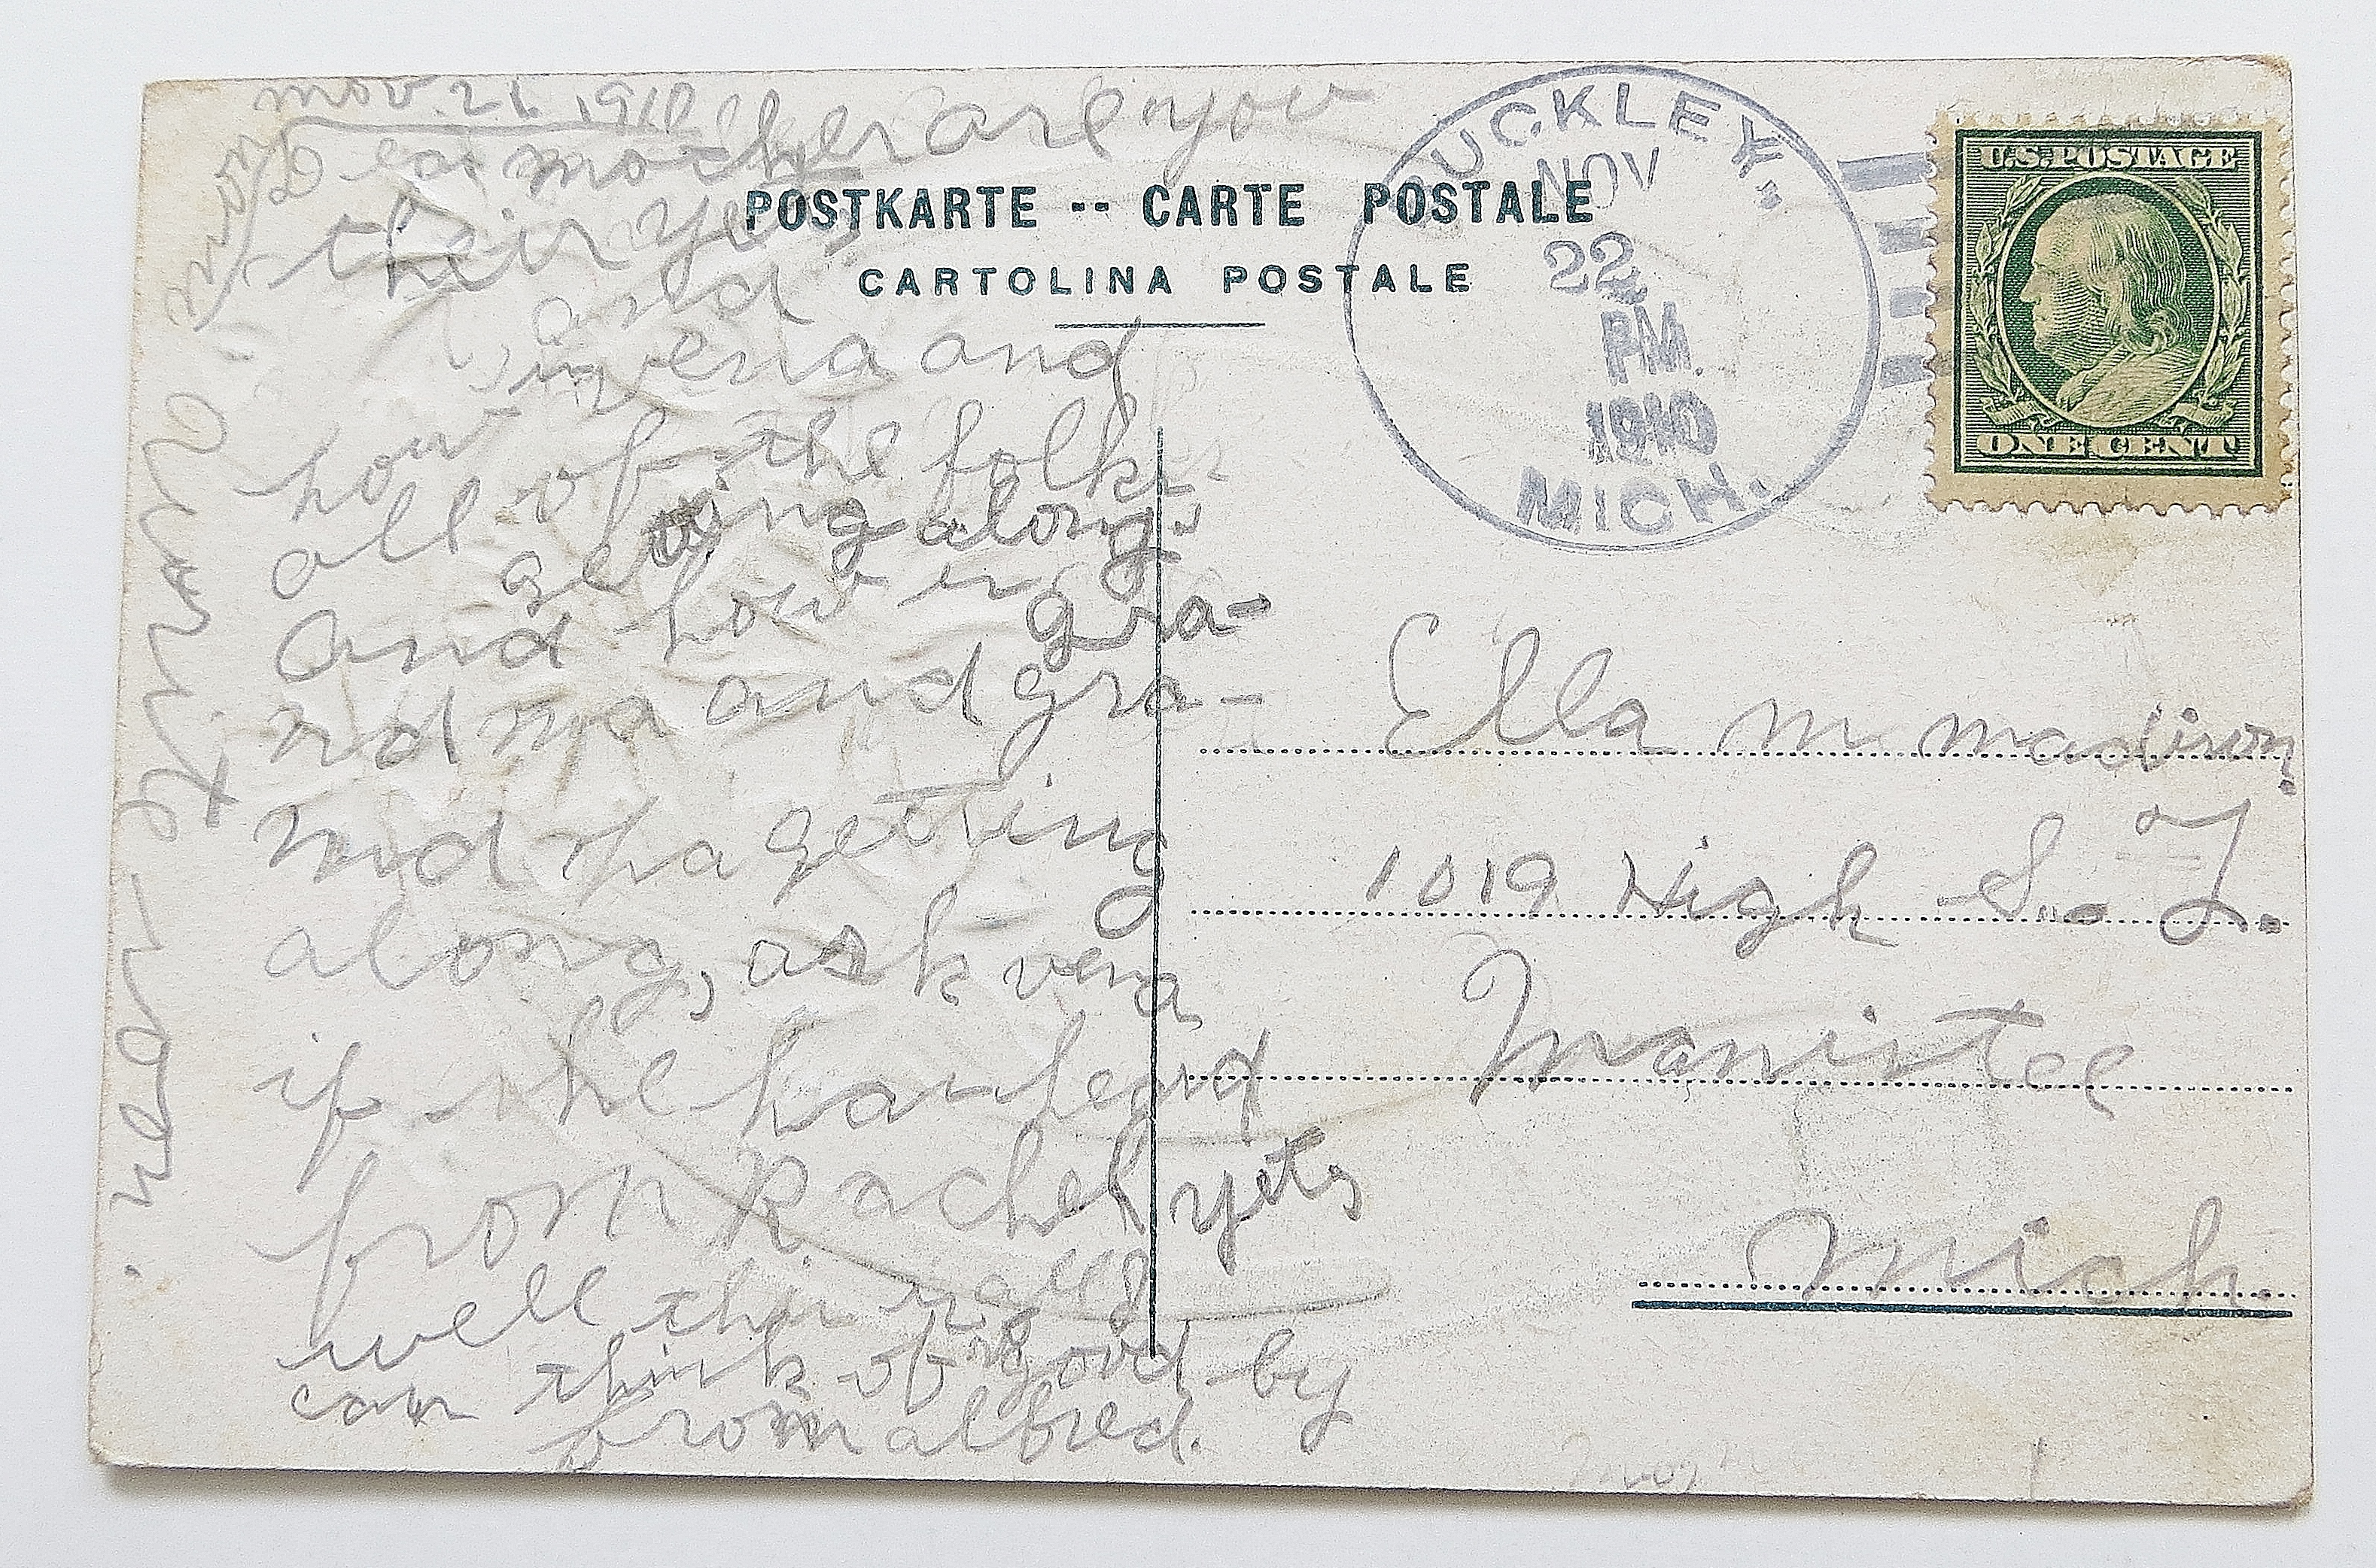 nov. 21. 1910
Dear mother are you
their yet
and
how vera and
all of the folks
getting along.
And how is gra-
ndma and gra-
ndpa getting
along, ask vera
if she has heard
from Rachel yets
well this is all I
can think of good by
from alfred.
near
POSTKARTE -- CARTE POSTALE
CARTOLINA POSTALE
UCKLEY,
NOV
22
PM.
1910
MICH.
U.S. POSTAGE
ONE CENT
Ella m madison
1019 High S. T.
Manistee
Mich.